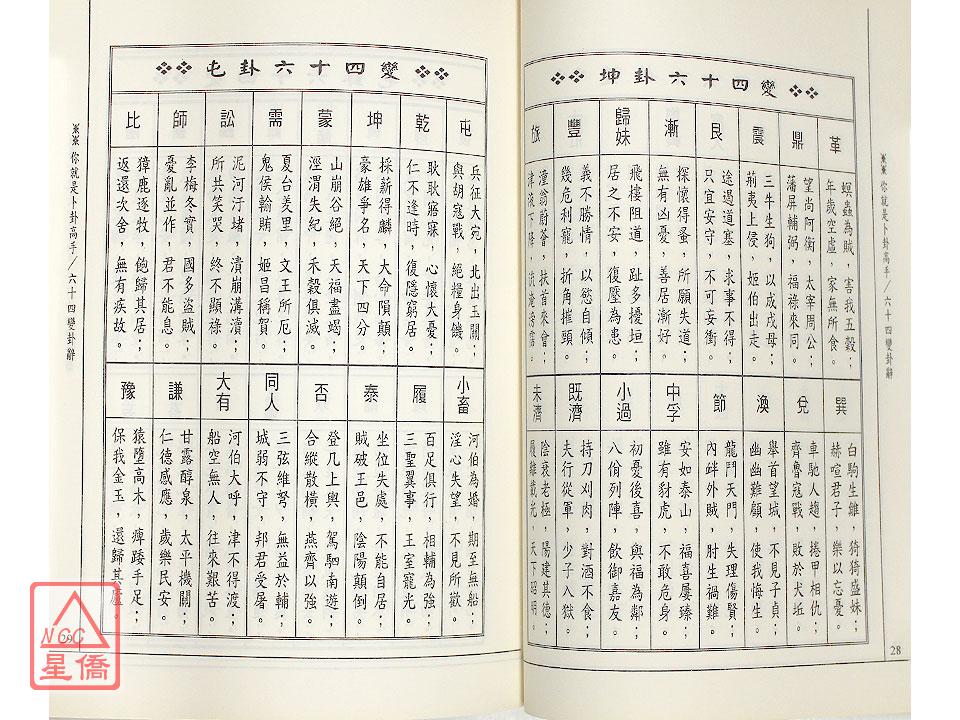 坤卦六十四變
革
螟蟲為賊，害我五穀；
年歲空虛，家無所食。
鼎
望尚阿衡，太宰周公；
藩屏輔弼，福祿來同。
震
三牛生狗，以戌為母；
荊夷上侵，姬伯出走。
艮
途過道塞，求事不得；
只宜安守，不可妄衝。
漸
探懷得蚤，所願失道；
無有凶憂，善居漸好。
歸妹
飛樓阻道，趾多擾垣；
居之不安，復壓為患。
豐
義不勝情，以慾自傾；
幾危利寵，折角摧頸。
旅
潼翁蔚薈，扶首來會；
巽
白駒生雛，猗猗盛妹；
赫喧君子，樂以忘憂。
兌
車馳人趨，捲甲相仇；
齊魯寇戰，敗於犬坵。
渙
舉首望城，不見子貞；
幽幽難顧，使我悔生。
節
龍門天門，失理傷賢；
內砰外賊，肘生禍難。
中孚
安如泰山，福喜屢臻；
雖有豺虎，不敢危身。
小過
初憂後喜，與福為鄰；
八佾列陣，飲御嘉友。
既濟
持刀刈肉，對酒不食；
夫行從軍，少子入獄。
未濟
陰衰老極，陽建其德；
履離戴光，天下昭明。
※※你就是卜卦高手/六十四變卦辭
28
屯卦六十四變
屯
兵征大宛，北出玉關；
與胡寇戰，絕糧身饑。
乾
耿耿寤寐，心懷大憂；
仁不逢時，復隱窮居。
坤
採薪得麟，大命隕顛；
豪雄爭名，天下四分。
蒙
山崩谷絕，天福盡竭；
涇渭失紀，禾穀俱滅。
需
夏台羑里，文王所厄；
鬼侯輸賄，姬昌稱賀。
訟
泥河汙堵，潰崩溝瀆；
所共笑哭，終不顯顛。
師
李梅冬實，國多盜賊；
憂亂並作，君不能息。
比
獐鹿逐牧，飽歸其居；
返還次舍，無有疾故。
小畜
河伯為婚，期至無船；
淫心失望，不見所歡。
履
百足俱行，相輔為強；
三聖翼事，王室寵光。
泰
坐位失處，不能自居；
賊破王邑，陰陽顛倒。
否
登几上輿，駕駟南遊；
合縱散橫，燕齊以強。
同人
三弦維弩，無益於輔；
城弱不守，邦君受屠。
大有
河伯大呼，津不得渡；
船空無人，往來艱苦。
謙
甘露醇泉，太平機關；
仁德感應，歲樂民安。
豫
猿墮高木，痺踒手足；
保我金玉，還歸其廬。
※※你就是卜卦高手/六十四變卦辭
29
NCC
星僑